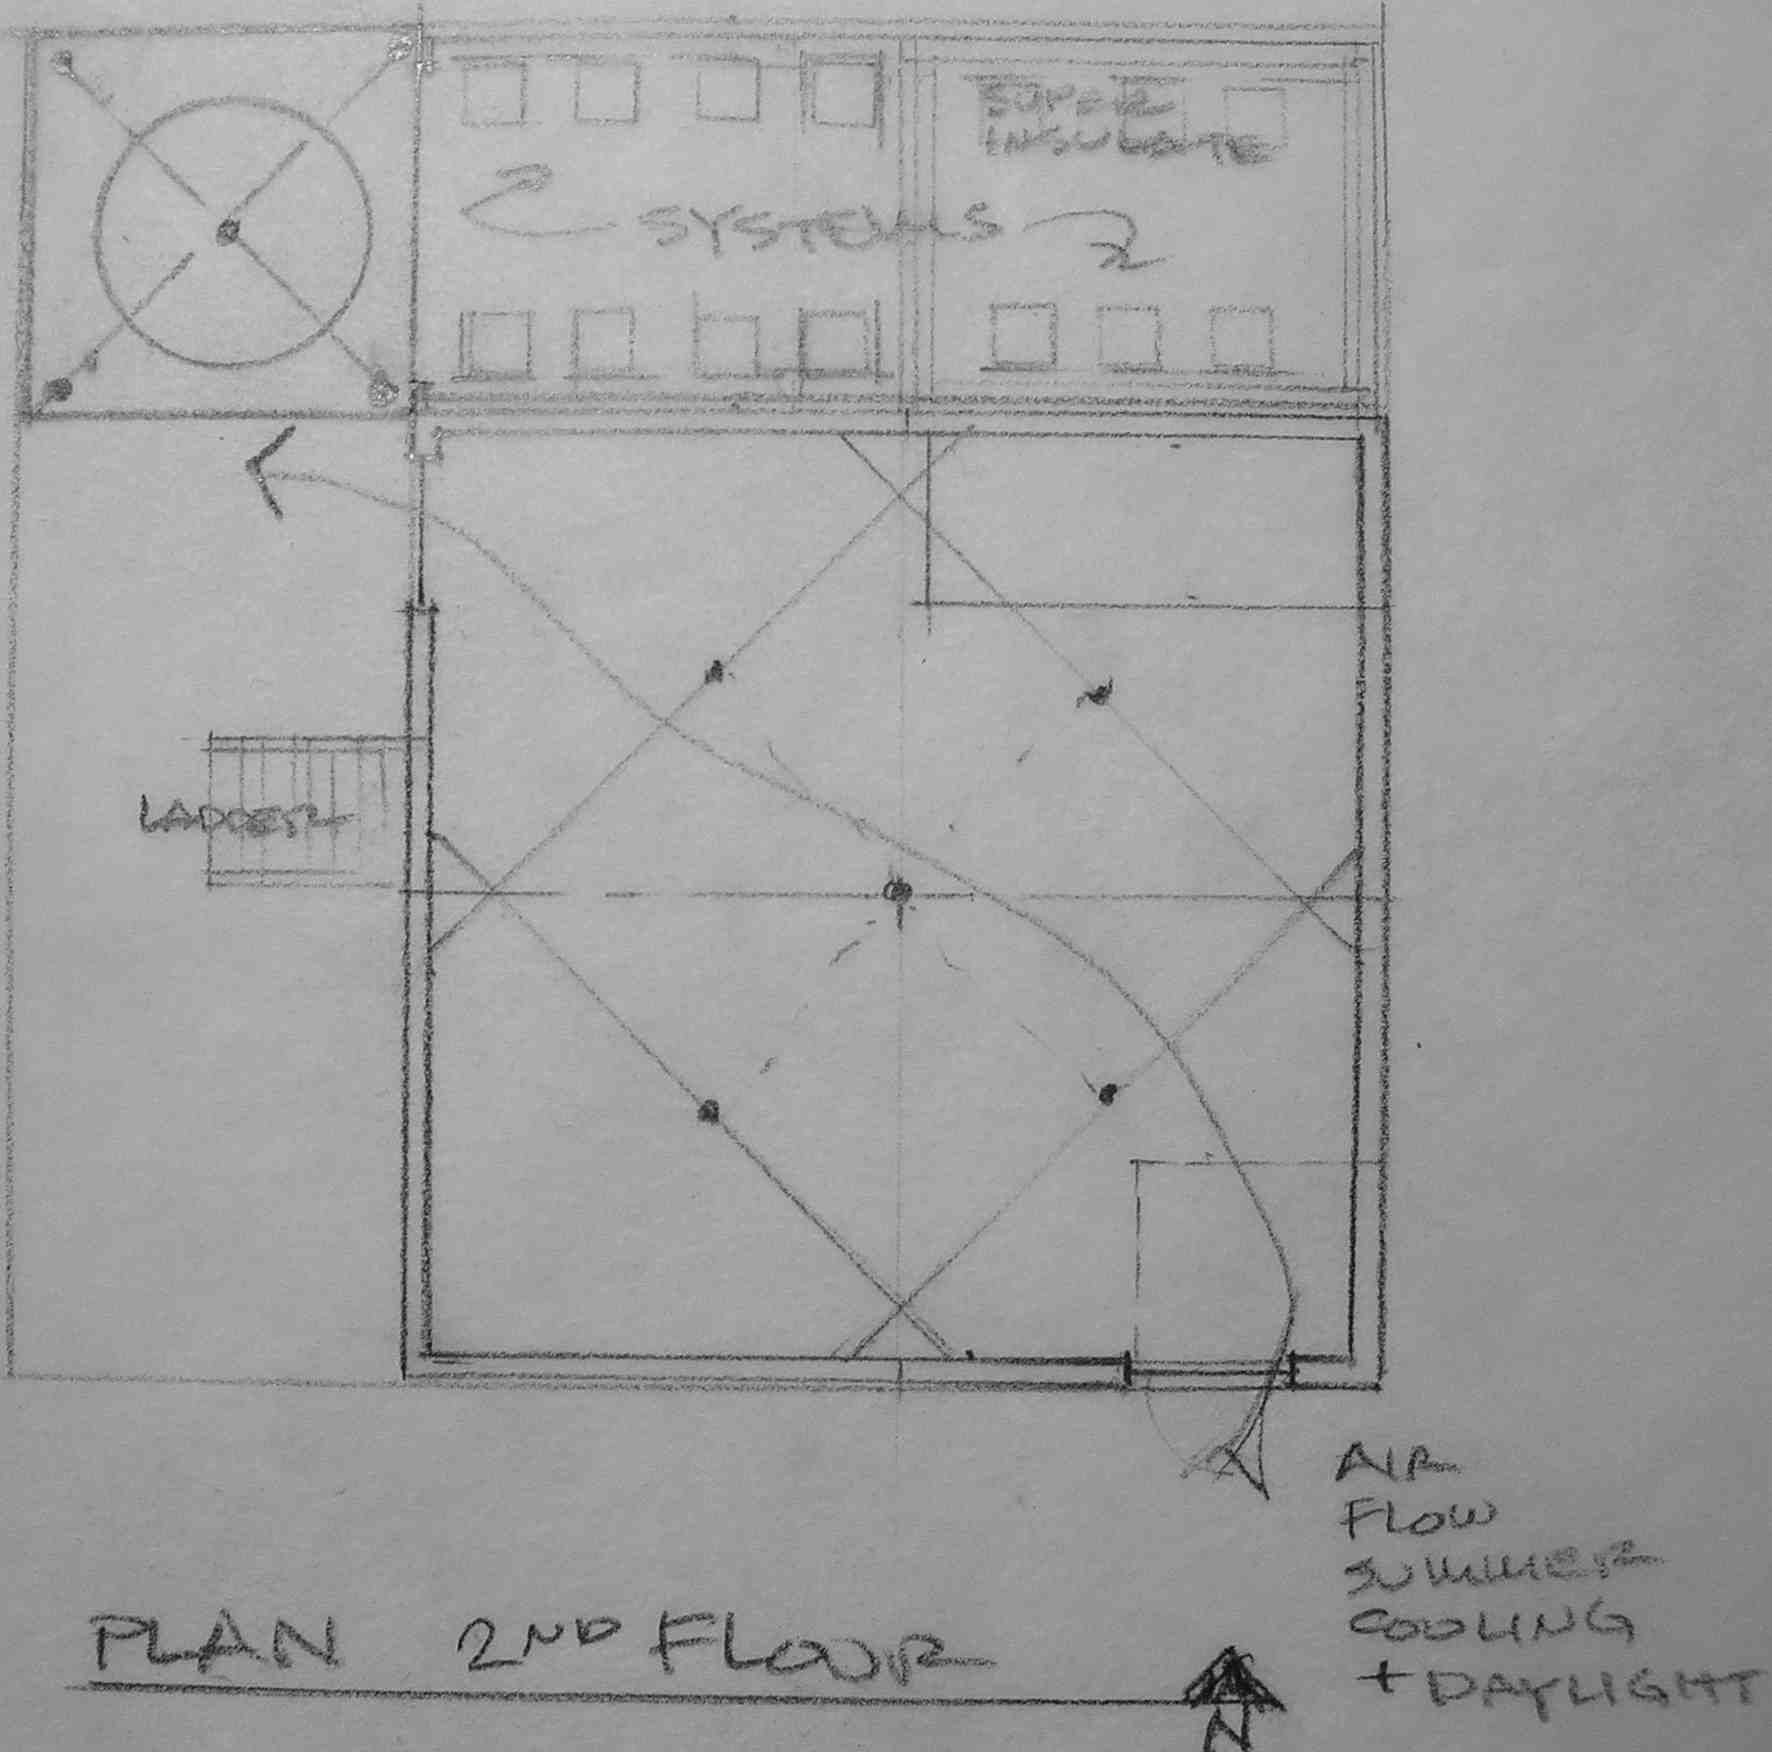 SUPER
INSULATE
SYSTEMS
LADDER
AIR
FLOW
SUMMER
COOLING
+ DAYLIGHT
PLAN 2ND FLOOR
N